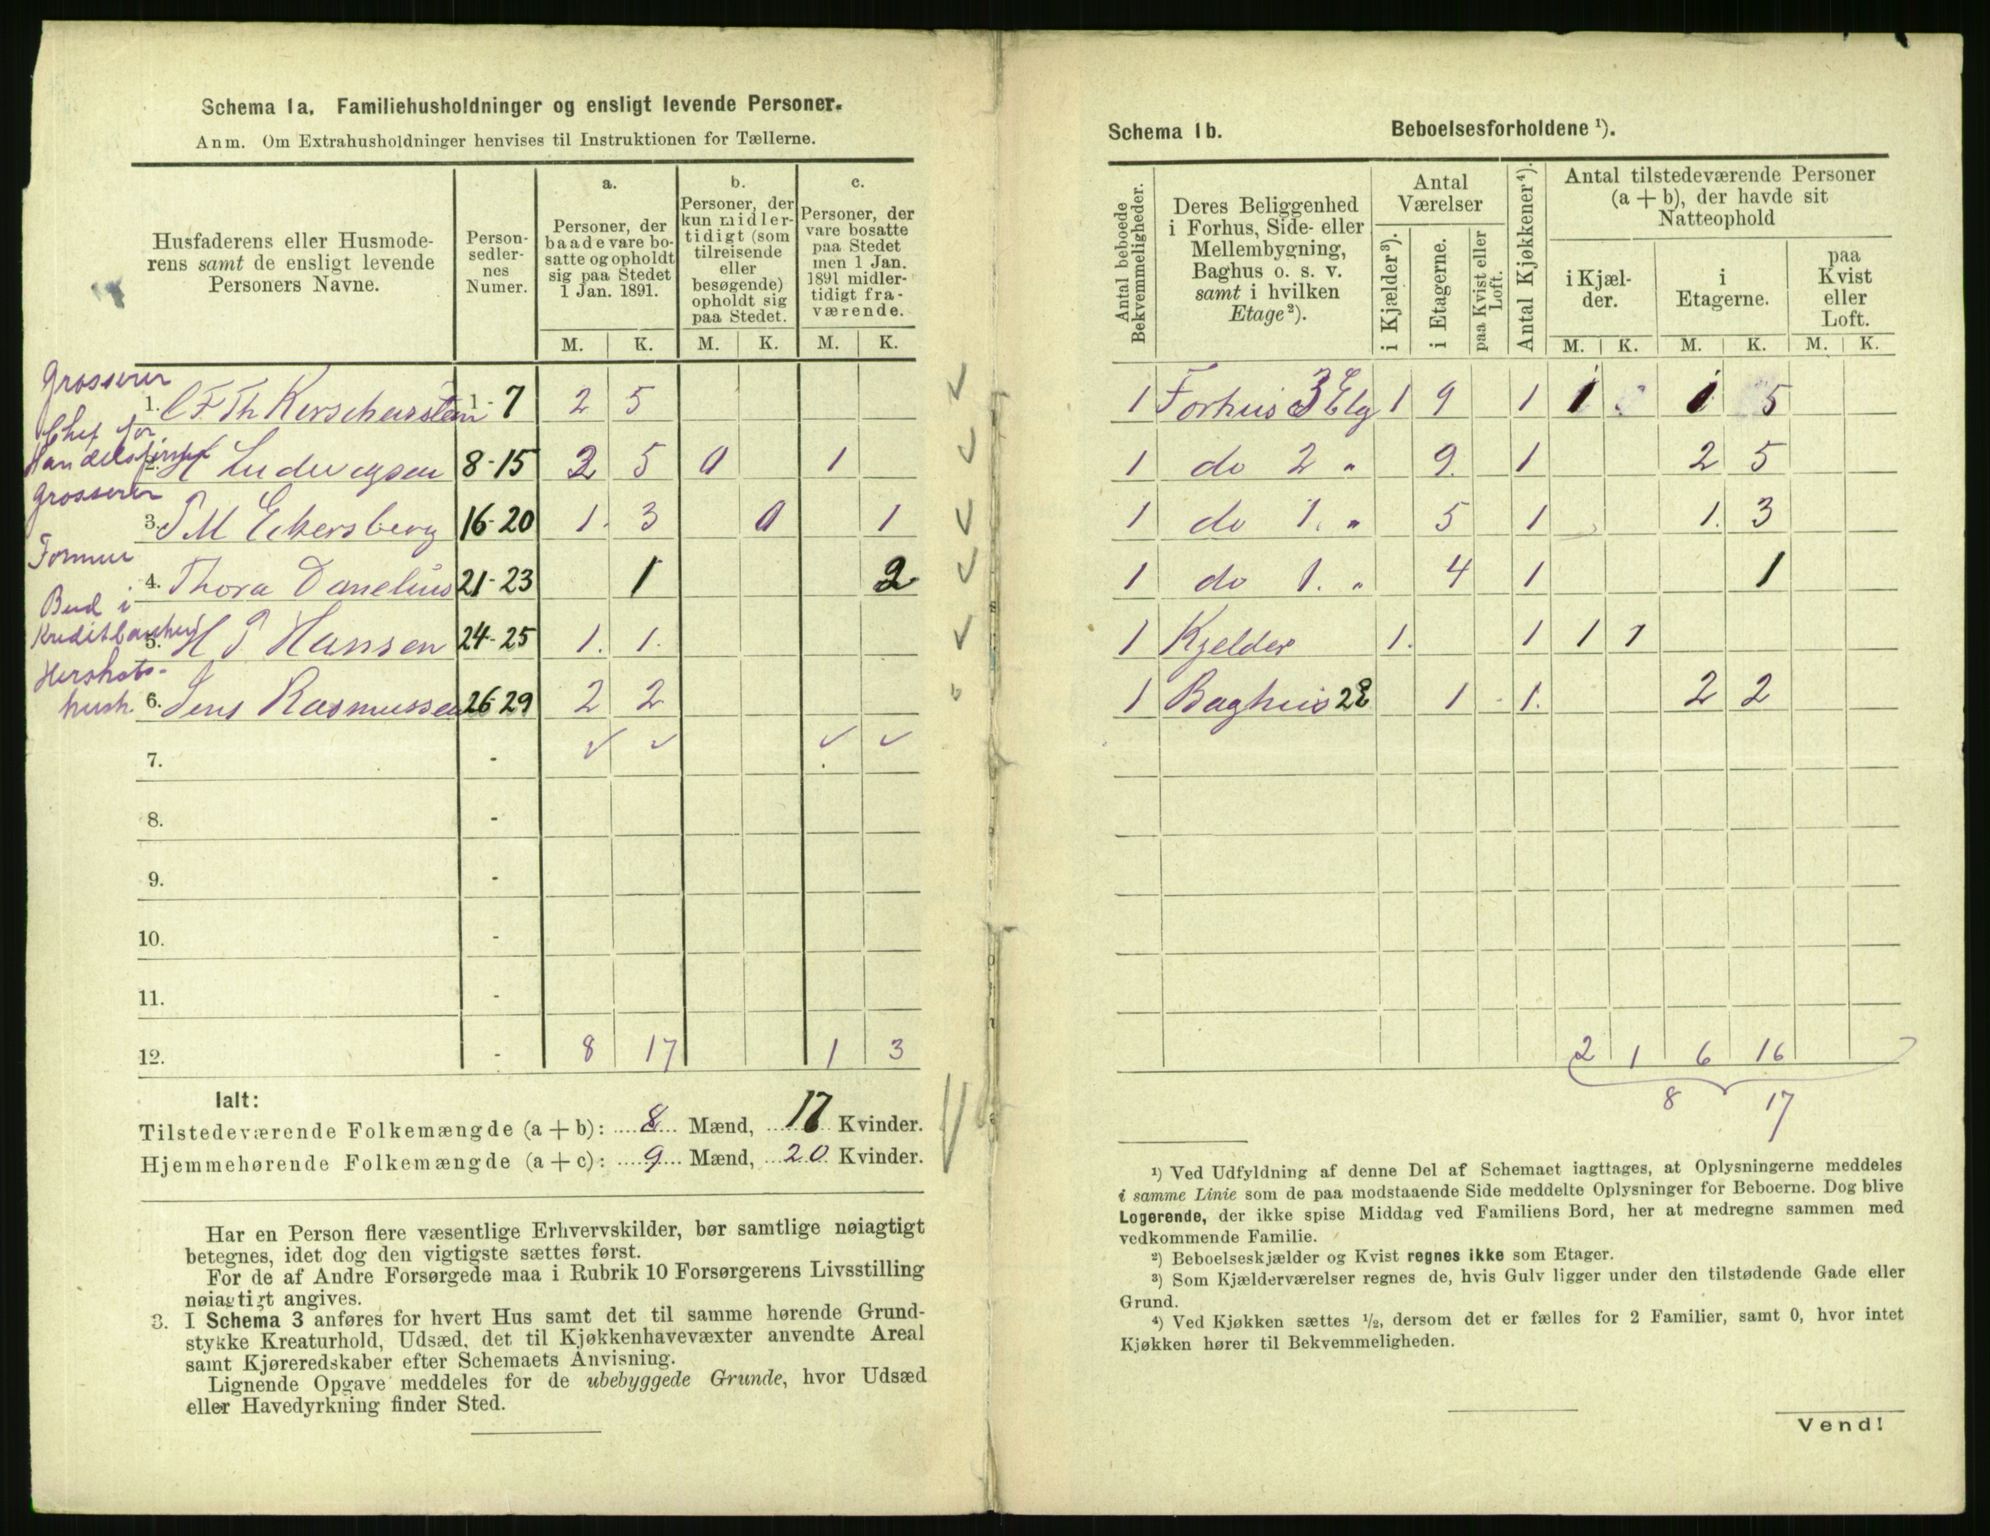 Schema 1a. Familiehusholdninger og ensligt levende Personer.
Anm. Om Extrahusholdninger henvises til Instruktionen for Tællerne.
Husfaderens eller Husmode-
rens samt de ensligt levende
Personers Navne.
Person-
sedler-
nes
Numer.
a.
Personer, der
baade vare bo-
satte og opholdt
sig paa Stedet
1 Jan. 1891.
b.
Personer, der
kun midler-
tidigt (som
tilreisende
eller
besøgende)
opholdt sig
paa Stedet.
c.
Personer, der
vare bosatte
paa Stedet
men 1 Jan.
1891 midler-
tidigt fra-
værende.
M. K. M. K. M. K.
Grosserer
1. C F Th Kerscharstein 1-7 2 5
Chef for
2. H Ludvigsen 8-15 2 5 0 1
Grosserer
3. P M Eckersberg 16-20 1. 3 0 1
4. Thora Danelius 21-23 1 2
Bud i
Kreditbanken
5. H P Hansen 24-25 1. 1.
hush. 6. Jens Rasmussen 26-29 2 2
7. - ✓ ✓ ✓ ✓
8. -
9. -
10. -
11. -
12. - 8 17 1 3
Ialt:
Tilstedeværende Folkemængde (a + b): 8 Mænd, 17 Kvinder.
Hjemmehørende Folkemængde (a + c): 9 Mænd, 20 Kvinder.
Har en Person flere væsentlige Erhvervskilder, bør samtlige nøiagtigt
betegnes, idet dog den vigtigste sættes først.
For de af Andre Forsørgede maa i Rubrik 10 Forsørgerens Livsstilling
nøiagtigt angives.
3. I Schema 3 anføres for hvert Hus samt det til samme hørende Grund-
stykke Kreaturhold, Udsæd, det til Kjøkkenhavevæxter anvendte Areal
samt Kjøreredskaber efter Schemaets Anvisning.
Lignende Opgave meddeles for de ubebyggede Grunde, hvor Udsæd
eller Havedyrkning finder Sted.
Schema 1b. Beboelsesforholdene ¹).
Antal beboede
Bekvemmeligheder.
Deres Beliggenhed
i Forhus, Side- eller
Mellembygning,
Baghus o. s. v.
samt i hvilken
Etage²).
Antal
Værelser
i Kjælder³).
i Etagerne.
paa Kvist eller
Loft.
Antal Kjøkkener⁴).
Antal tilstedeværende Personer
(a + b), der havde sit
Natteophold
i Kjæl-
der.
i
Etagerne.
paa
Kvist
eller
Loft.
M. K. M. K. M. K.
1 Forhus 3 Etg 1 9 1 1 1 5
1 do 2 " 9 1 2 5
1 do 1. " 5 1 1. 3
1 do 1. " 4 1 1
1 Kjelder 1. 1 1 1
1 Baghus 2 E 1 - 1. 2 2
2 1 6 16
8 17
¹) Ved Udfyldning af denne Del af Schemaet iagttages, at Oplysningerne meddeles
i samme Linie som de paa modstaaende Side meddelte Oplysninger for Beboerne. Dog blive
Logerende, der ikke spise Middag ved Familiens Bord, her at medregne sammen med
vedkommende Familie.
²) Beboelseskjælder og Kvist regnes ikke som Etager.
³) Som Kjælderværelser regnes de, hvis Gulv ligger under den tilstødende Gade eller
Grund.
⁴) Ved Kjøkken sættes ½, dersom det er fælles for 2 Familier, samt 0, hvor intet
Kjøkken hører til Bekvemmeligheden.
Vend!